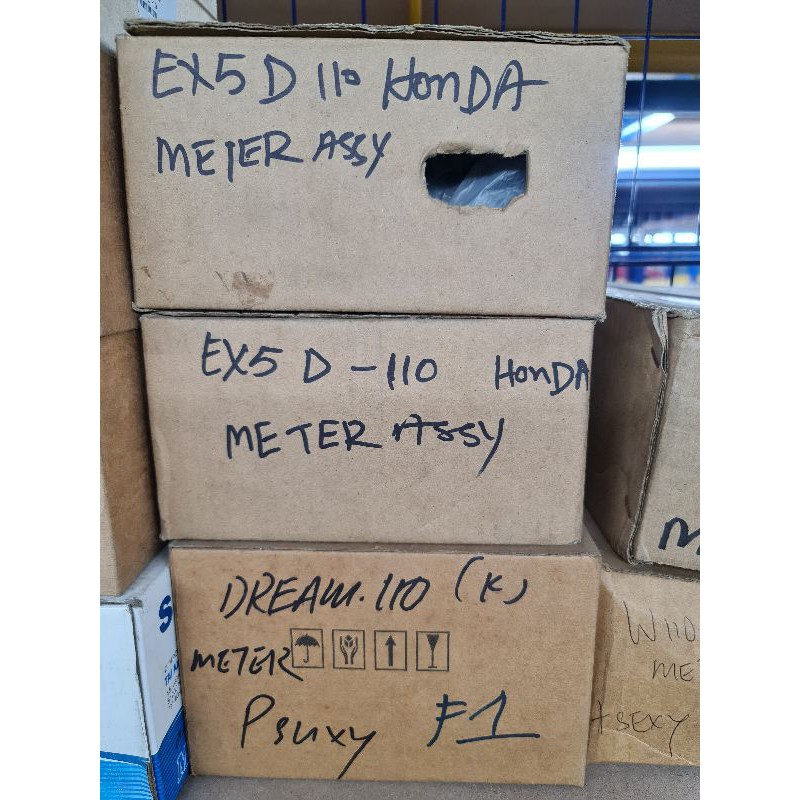 EX5 D 110 HONDA
METER ASSY
EX5 D - 110 HONDA
METER ASSY
DREAM. 110 (K)
METER
F1
W110
ME
SEXY
M
S